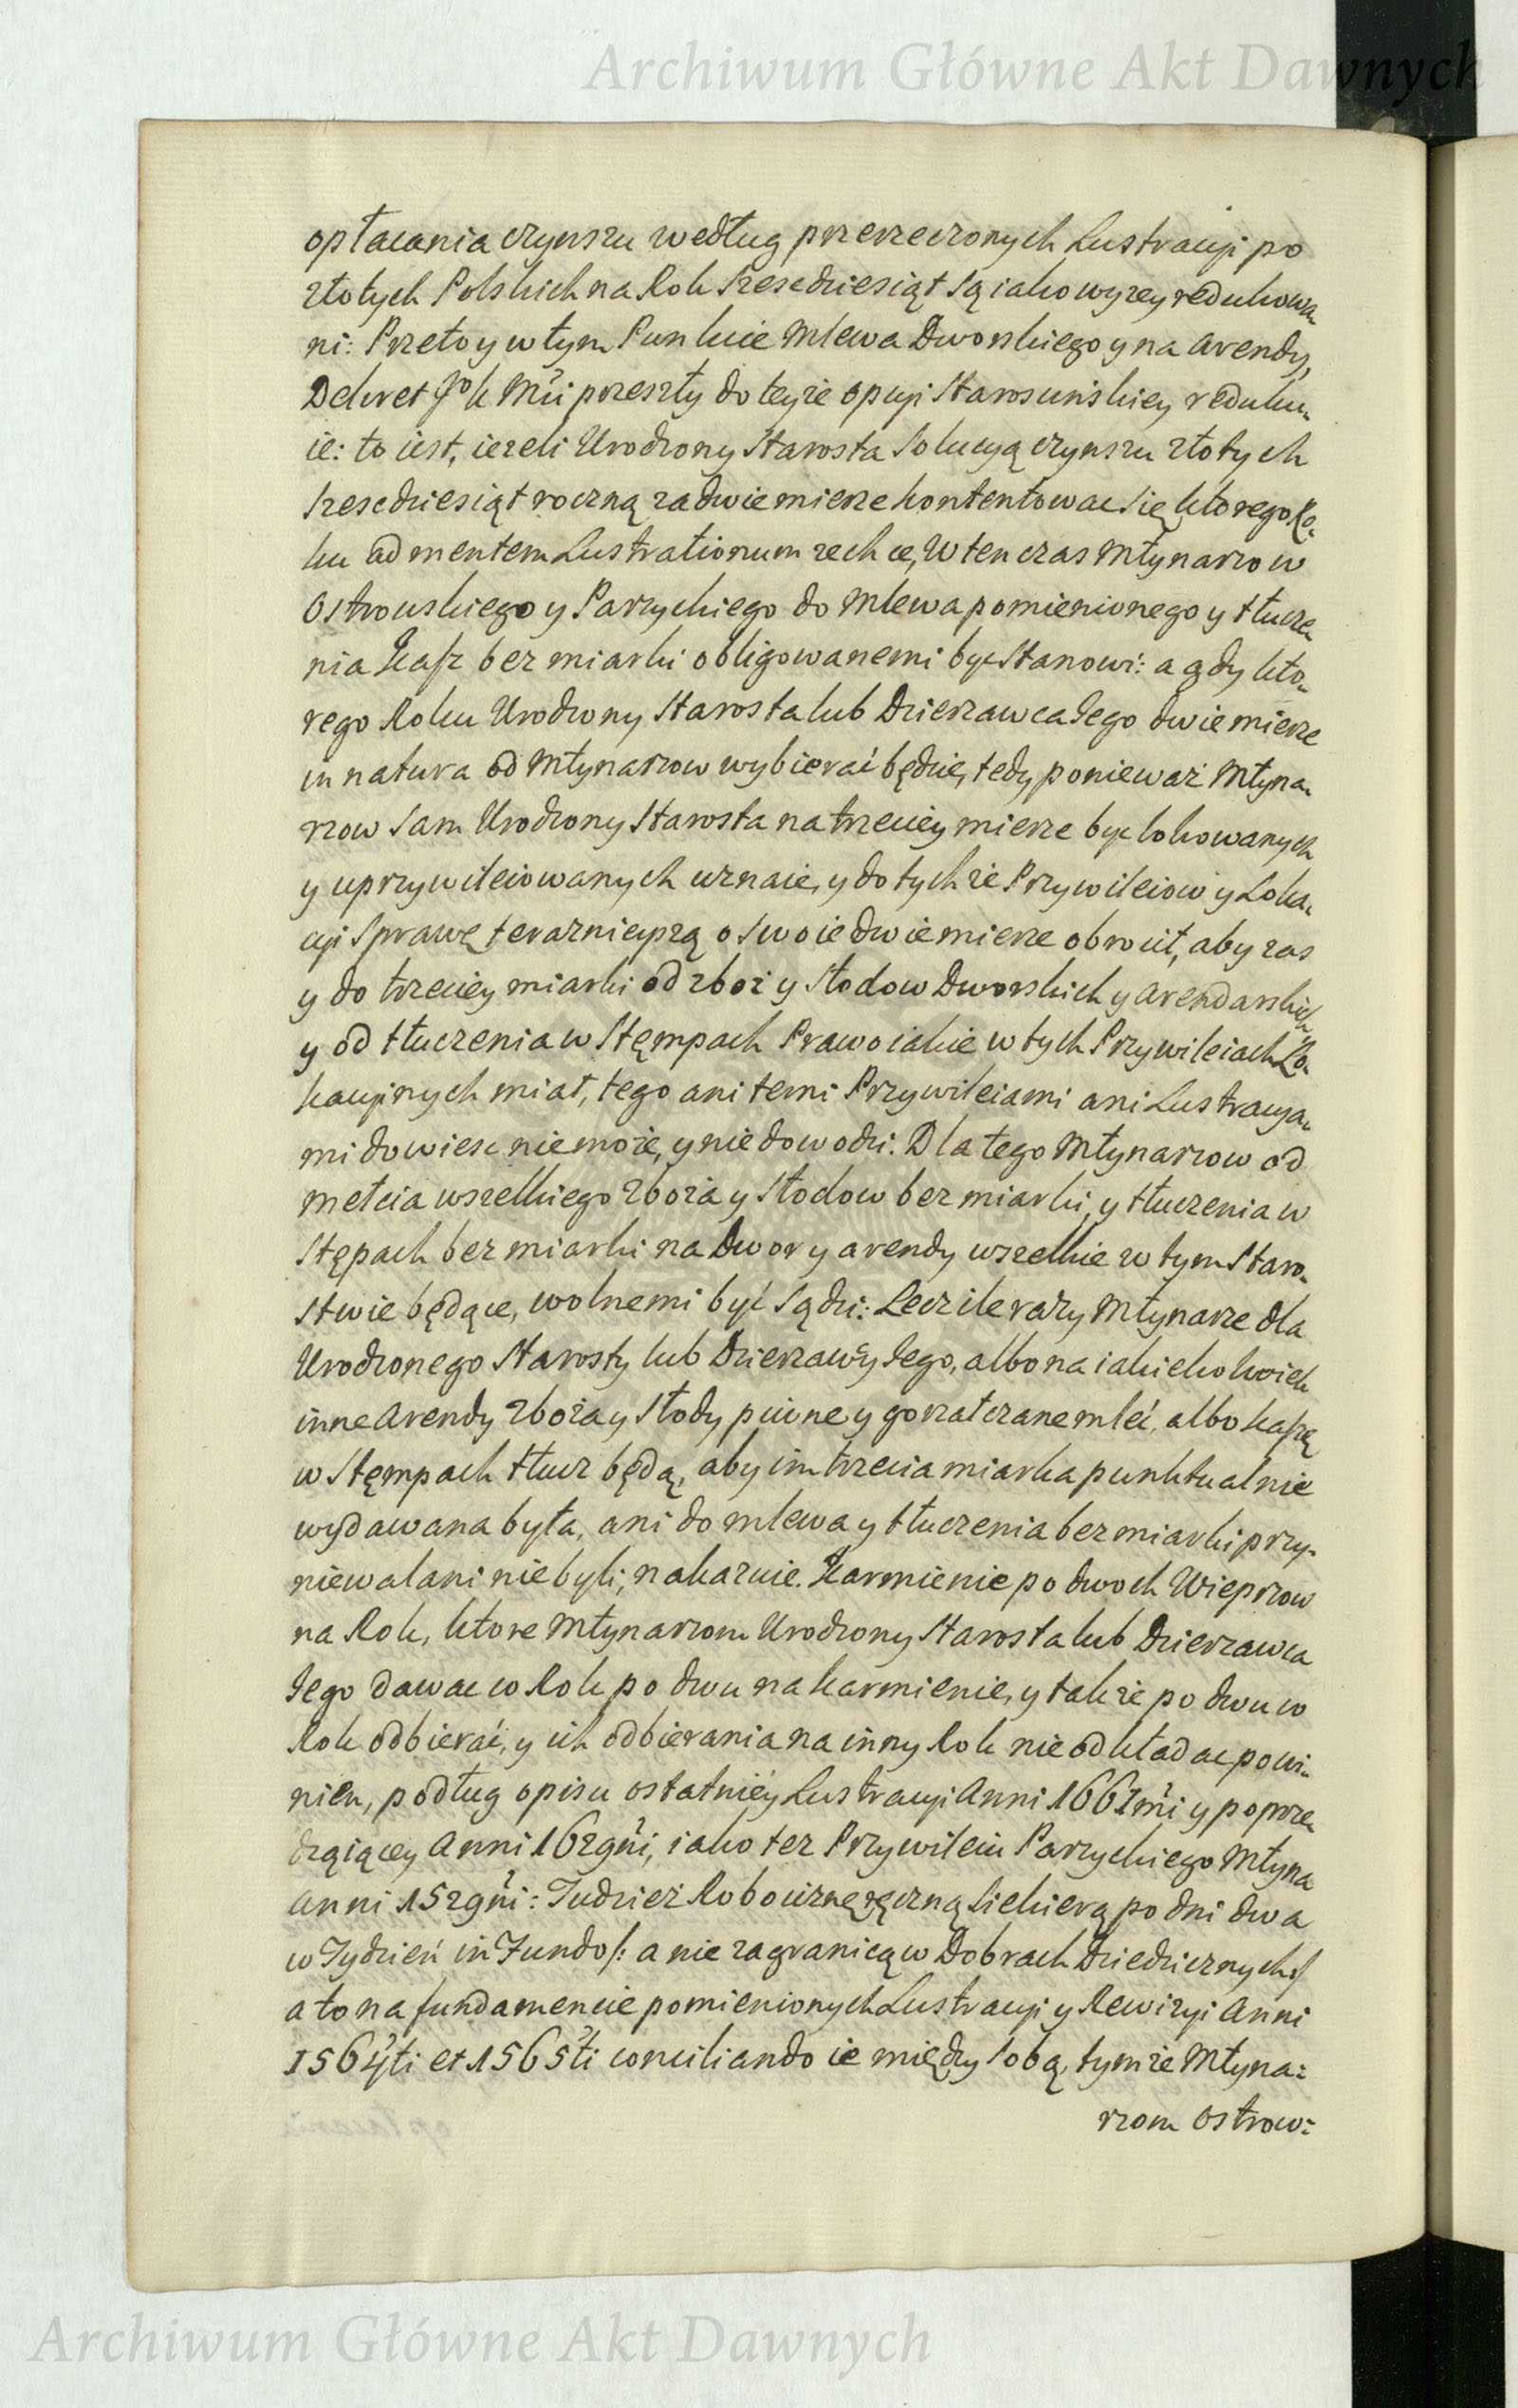 Archiwum Główne Akt Dawnych
opłacania czynszu według przerzeczonych Lustracyi po
złotych Polskich na Rok szescdziesiąt są iako wyzey redukowa„
ni: Przeto y w tym Punkcie Mlewa Dworskiego y na Arendy,
Dekret J°K Mći przeszły do teyże opcyi Starosciński​ey reduku„
ie: to iest, iezeli Urodzony Starosta Solucyą czynszu złotych
szescdziesiąt roczną za dwie mierze kontentowac się ktorego Ro„
ku ad mentem Lustrationum zechce, W ten czas Młynarzow
Ostrowskiego y Parzyckiego do Mlewa pomienionego y tłucze„
nia Kasz bez miarki obligowanemi byc stanowi: a gdy kto„
rego Roku Urodzony Starosta lub Dzierzawca Jego dwie mierze
in natura od Młynarzow wybierać będzie, tedy ponieważ Młyna„
rzow sam Urodzony Starosta na trzeciey mierze byc lokowanych
y uprzywileiowanych uznaie, y do tychże Przywileiow y Loka„
cyi Sprawę terazniejszą o swoie dwie mierze obrocił, aby zas
y do trzeciey miarki od zboż y Słodow Dworskich y Arendarskich
y od tłuczenia w Stęmpach Prawo iakie w tych Przywileiach Lo„
kacyinych miał, tego ani temi Przywileiami ani Lustracya„
mi dowiesc nie może, y nie dowodzi. Dla tego Młynarzow od
mełcia wszelkiego zboża y Słodow bez miarki, y tłuczenia w
Stępach bez miarki na Dwor y arendy wszelkie w tym Staro„
stwie będące, wolnemi być sądzi: Lecz ile razy Młynarze dla
Urodzonego Starosty lub Dzierzawcy Jego, albo na iakiekolwiek
inne Arendy zboża y Słody piwne y gorzałczane mleć, albo kaszę
w Stęmpach tłuc będą, aby im trzecia miarka punktualnie
wydawana była, ani do mlewa y tłuczenia bez miarki przy„
niewalani nie byli, nakazuie. Karmienie po dwoch Wieprzow
na Rok, ktore Młynarzom Urodzony Starosta lub Dzierzawca
Jego dawac co Rok po dwu na karmienie, y także po dwu co
Rok odbierać, y ich odbierania na inny Rok nie odkładac powi„
nien, podług opisu ostatniéy Lustracyi Anni 1661mi y poprze„
dzaiącey Anni 1629ni, iako tez Przywileiu Parzyckiego Młyna
Anni 1529ni: Tudzież Robociznę ręczną siekierą po dni dwa
w Tydzień in Fundo /: a nie zagranicą w Dobrach Dziedzicznych :/
a to na fundamencie pomienionych Lustracyi y Rewizyi Anni
1564ti et 1565ti conciliando ie między sobą, tymże Młyna:
rzom Ostrow:
Archiwum Główne Akt Dawnych